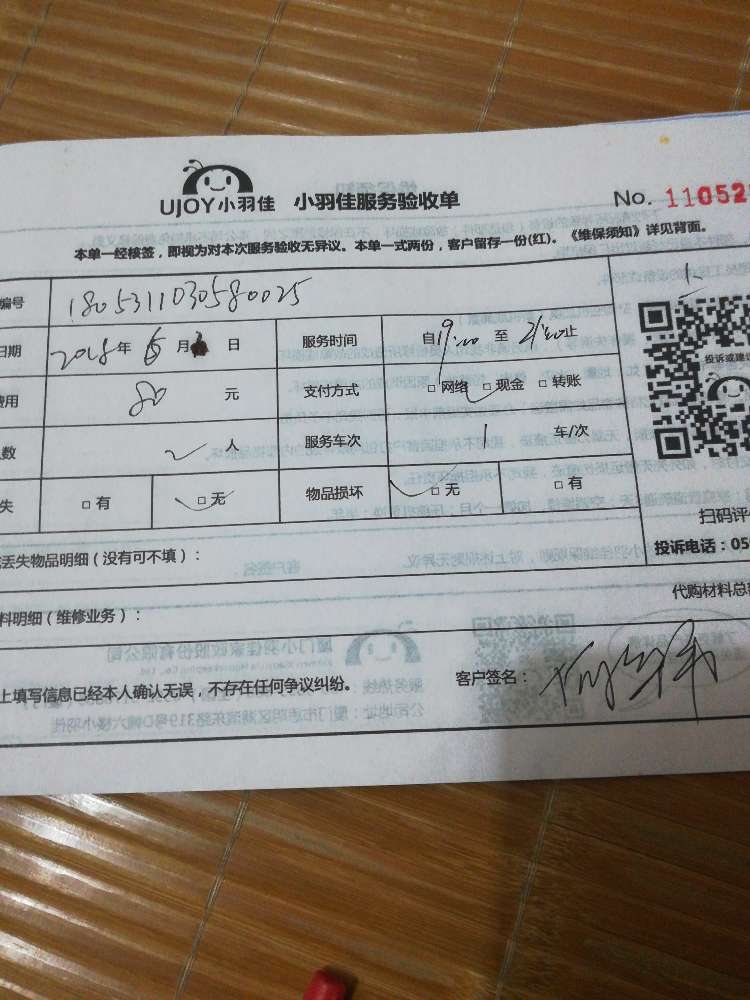 UJOY小羽佳 小羽佳服务验收单 No. 11052
本单一经核签，即视为对本次服务验收无异议。本单一式两份，客户留存一份(红)。《维保须知》详见背面。
编号 1805311030580025
日期 2018年6月 日 服务时间 自19:00至21:00止
费用 80元 支付方式 □网络 □现金 □转账
人数 2人 服务车次 1 车/次
失 □有 □无 物品损坏 □无 □有
投诉或建
扫码评
投诉电话：05
丢失物品明细（没有可不填）：
代购材料总
料明细（维修业务）：
上填写信息已经本人确认无误，不存在任何争议纠纷。 客户签名：